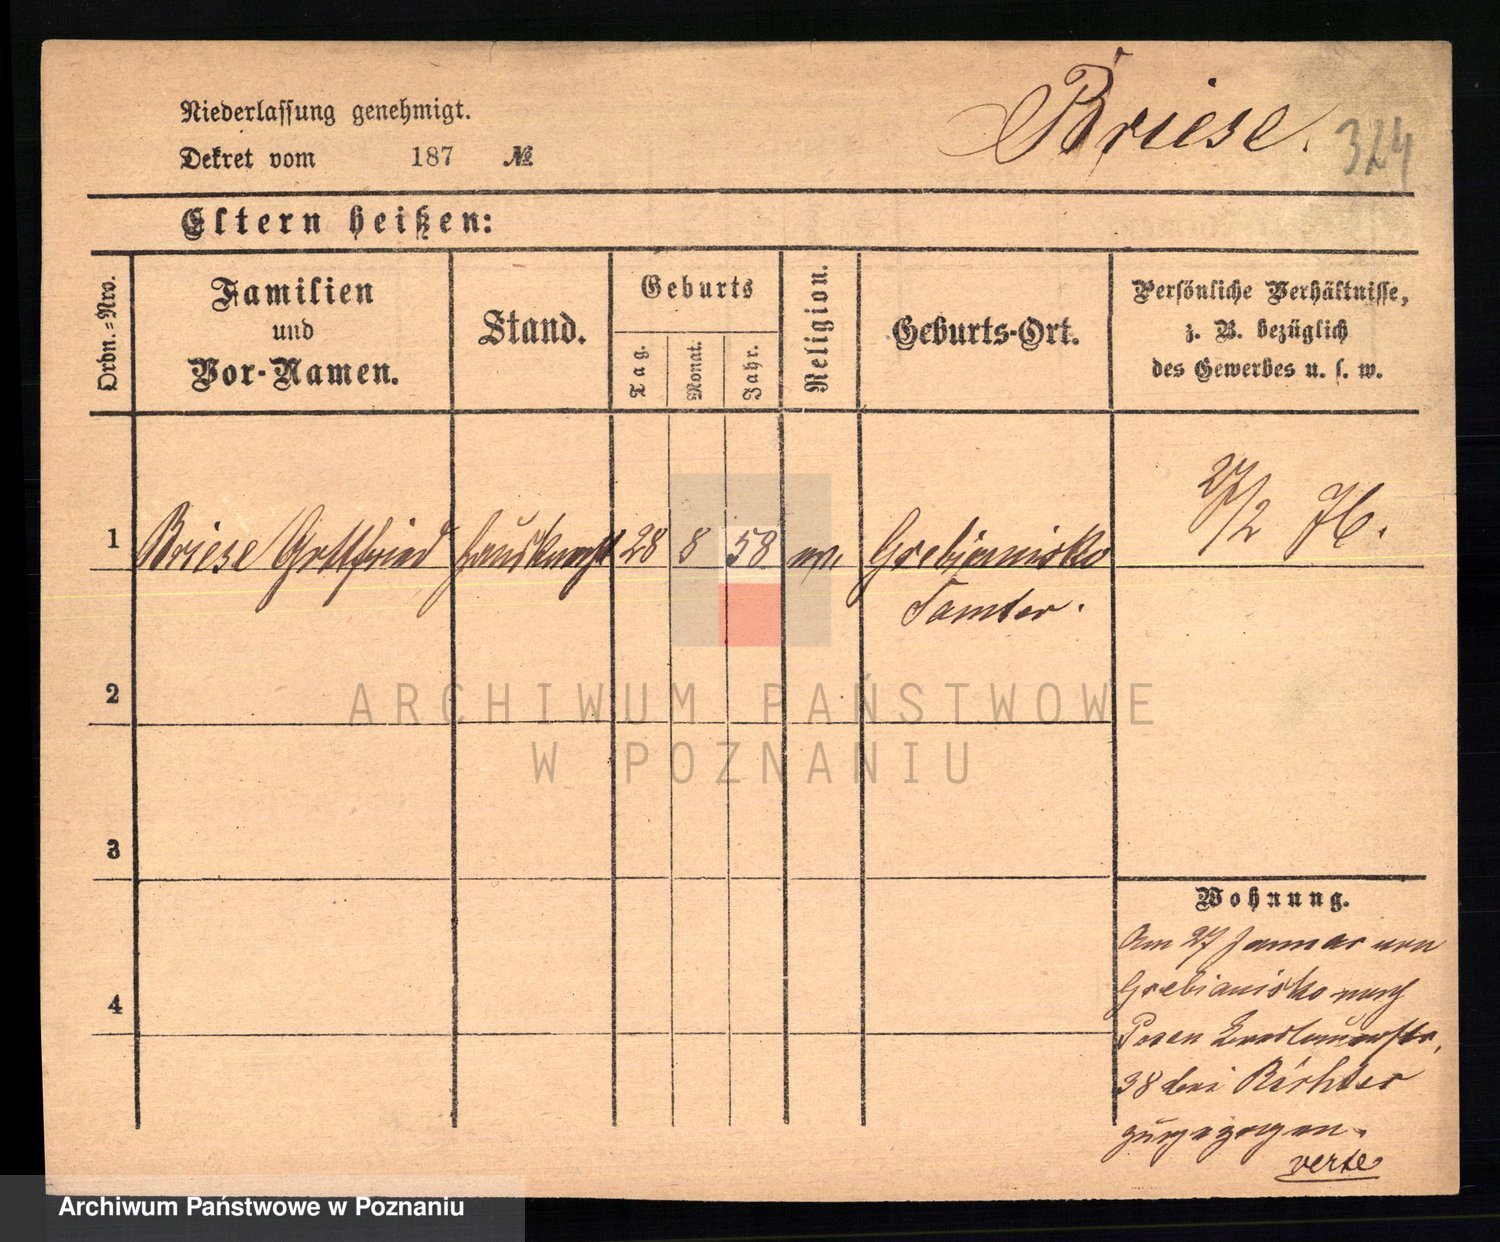 Niederlassung genehmigt.
Dekret vom 187 №
Briese. 324
Eltern heißen:
Ordn.-Nro.
Familien
und
Vor-Namen.
Stand.
Geburts
Tag.
Monat.
Jahr.
Religion.
Geburts-Ort.
Persönliche Verhältnisse,
z. B. bezüglich
des Gewerbes u. s. w.
27/2
1 Briese Gottfried Hausknecht 28 8 58 Grebjenisko
Samter.
2
3
4
Wohnung.
Am 27 Januar von
Grebianisko nach
Posen
38 bei Richter
zugezogen.
verte
ARCHIWUM PAŃSTWOWE
W POZNANIU
Archiwum Państwowe w Poznaniu